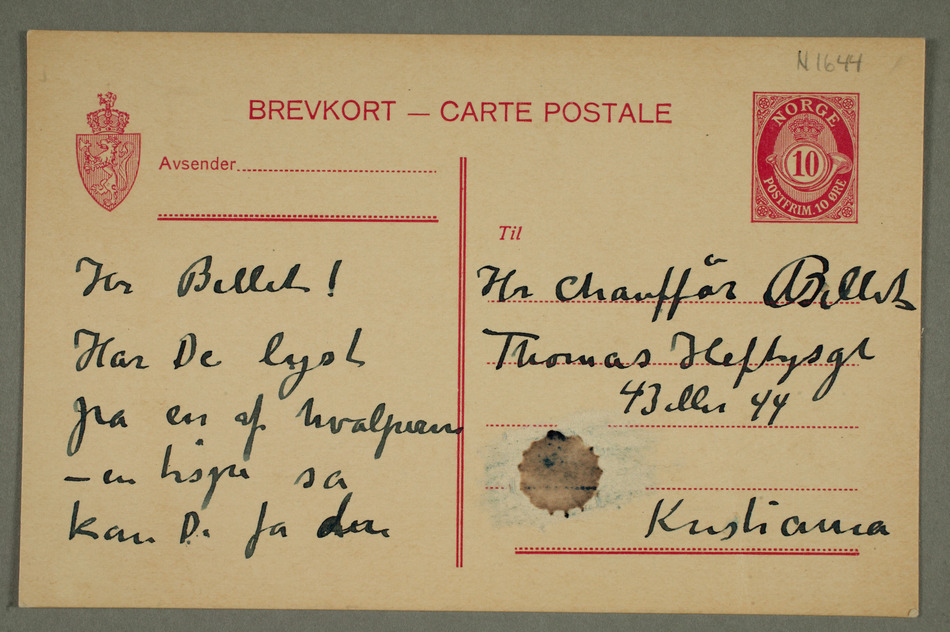 N 1644
BREVKORT — CARTE POSTALE
NORGE
10
POSTFRIM. 10 ØRE
Avsender
Hr Billet!
Har De lyst
pa en af hvalpene
– en tispe sa
kan De fa den
Til
Hr Chaufför Billet
Thomas Heftysgt
43 eller 44
Kristiania